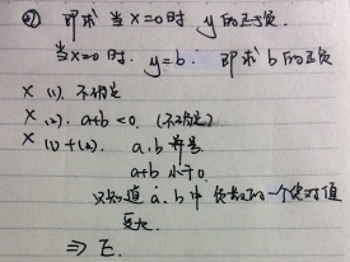 ② 即求 当x=0时 y的正负.
当x=0时. y=b. 即求b的正负
× (1). 不确定
× (2). a+b<0. (不确定)
× (1)+(2). a.b异号
a+b 小于0.
只知道a.b中 负数的一个绝对值
更大.
⇒ E.